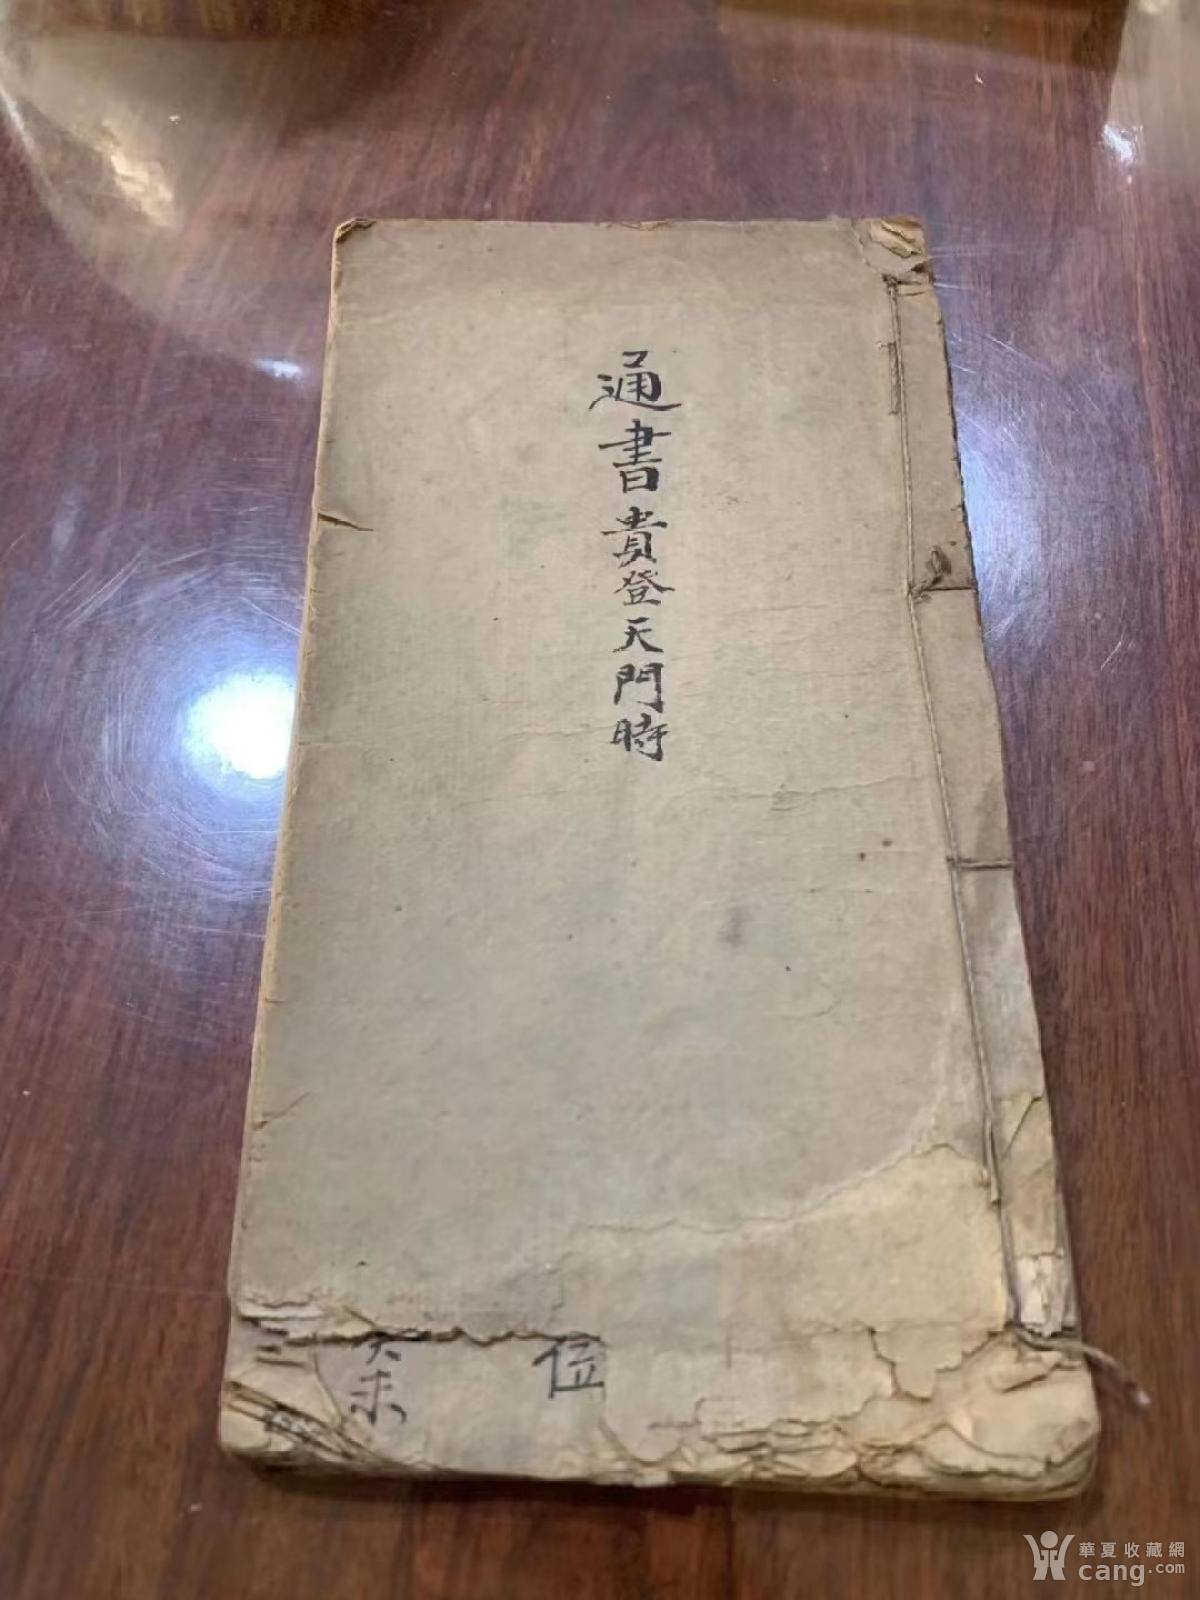 通書貴登天門時
位
未
華夏收藏網
cang.com